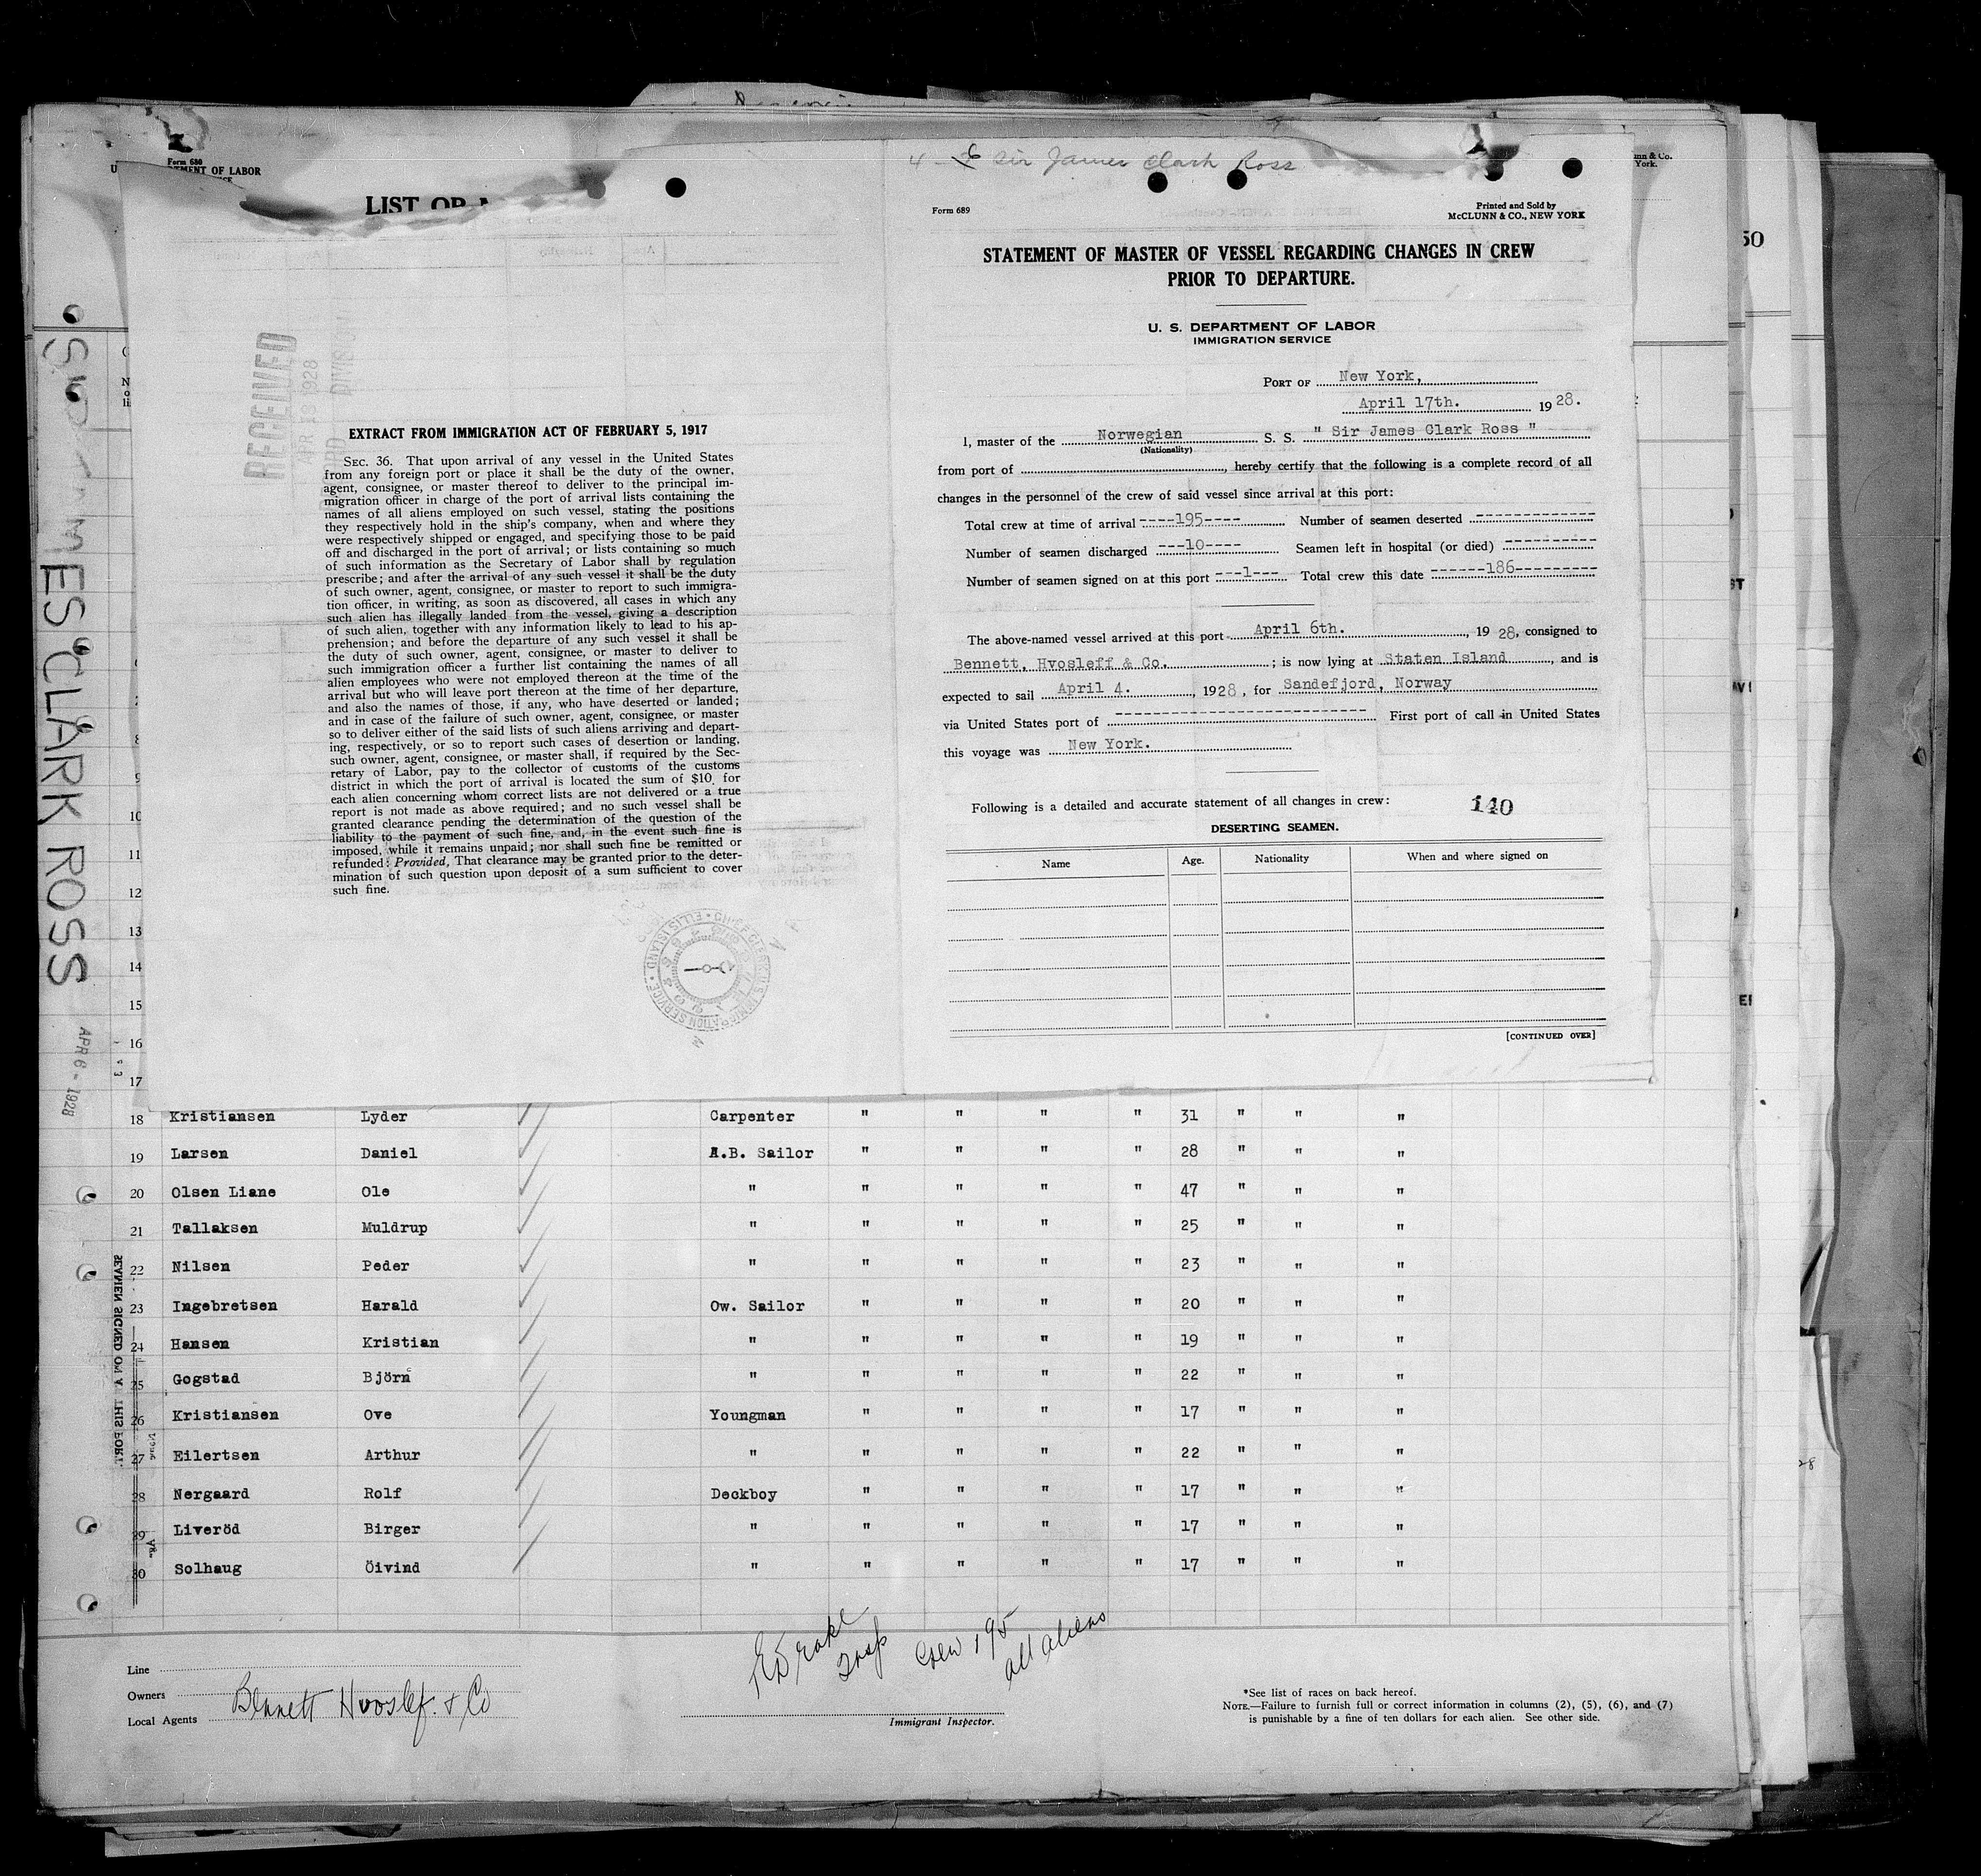 Form 680
DEPARTMENT OF LABOR
LIST OR
4 - 6 Sir James Clark Ross
Form 689
Printed and Sold by
McCLUNN & CO., NEW YORK
STATEMENT OF MASTER OF VESSEL REGARDING CHANGES IN CREW
PRIOR TO DEPARTURE.
U. S. DEPARTMENT OF LABOR
IMMIGRATION SERVICE
PORT OF New York,
April 17th. 1928.
I, master of the Norwegian S. S. " Sir James Clark Ross "
(Nationality)
from port of , hereby certify that the following is a complete record of all
changes in the personnel of the crew of said vessel since arrival at this port:
Total crew at time of arrival ----195---- Number of seamen deserted --------------
Number of seamen discharged ---10---- Seamen left in hospital (or died) ----------
Number of seamen signed on at this port ---1--- Total crew this date ------186---------
The above-named vessel arrived at this port April 6th. , 1928, consigned to
Bennett, Hvosleff & Co. ; is now lying at Staten Island , and is
expected to sail April 4. , 1928, for Sandefjord, Norway
via United States port of ---------------------------- First port of call in United States
this voyage was New York.
Following is a detailed and accurate statement of all changes in crew: 140
DESERTING SEAMEN.
Name Age. Nationality When and where signed on
[CONTINUED OVER]
RECEIVED
APR 18 1928
DIVISION
EXTRACT FROM IMMIGRATION ACT OF FEBRUARY 5, 1917
SEC. 36. That upon arrival of any vessel in the United States
from any foreign port or place it shall be the duty of the owner,
agent, consignee, or master thereof to deliver to the principal im-
migration officer in charge of the port of arrival lists containing the
names of all aliens employed on such vessel, stating the positions
they respectively hold in the ship's company, when and where they
were respectively shipped or engaged, and specifying those to be paid
off and discharged in the port of arrival; or lists containing so much
of such information as the Secretary of Labor shall by regulation
prescribe; and after the arrival of any such vessel it shall be the duty
of such owner, agent, consignee, or master to report to such immigra-
tion officer, in writing, as soon as discovered, all cases in which any
such alien has illegally landed from the vessel, giving a description
of such alien, together with any information likely to lead to his ap-
prehension; and before the departure of any such vessel it shall be
the duty of such owner, agent, consignee, or master to deliver to
such immigration officer a further list containing the names of all
alien employees who were not employed thereon at the time of the
arrival but who will leave port thereon at the time of her departure,
and also the names of those, if any, who have deserted or landed;
and in case of the failure of such owner, agent, consignee, or master
so to deliver either of the said lists of such aliens arriving and depart-
ing, respectively, or so to report such cases of desertion or landing,
such owner, agent, consignee, or master shall, if required by the Sec-
retary of Labor, pay to the collector of customs of the customs
district in which the port of arrival is located the sum of $10 for
each alien concerning whom correct lists are not delivered or a true
report is not made as above required; and no such vessel shall be
granted clearance pending the determination of the question of the
liability to the payment of such fine, and, in the event such fine is
imposed, while it remains unpaid; nor shall such fine be remitted or
refunded: Provided, That clearance may be granted prior to the deter-
mination of such question upon deposit of a sum sufficient to cover
such fine.
CLARK ROSS
APR 6 - 1928
10
11
12
13
14
15
16
17
18 Kristiansen Lyder Carpenter " " " " 31 " " "
19 Larsen Daniel A.B. Sailor " " " " 28 " " "
20 Olsen Liane Ole " " " " " 47 " " "
21 Tallaksen Muldrup " " " " " 25 " " "
22 Nilsen Peder " " " " " 23 " " "
23 Ingebretsen Harald Ow. Sailor " " " " 20 " " "
24 Hansen Kristian " " " " " 19 " " "
25 Gogstad Björn " " " " " 22 " " "
26 Kristiansen Ove Youngman " " " " 17 " " "
27 Eilertsen Arthur " " " " " 22 " " "
28 Nergaard Rolf Deckboy " " " " 17 " " "
29 Liveröd Birger " " " " " 17 " " "
30 Solhaug Öivind " " " " " 17 " " "
SEAMEN SIGNED ON AT THIS PORT.
Crew 195
all aliens
Line
Owners
Local Agents Bennett Hvoslef & Co
Immigrant Inspector.
*See list of races on back hereof.
NOTE.—Failure to furnish full or correct information in columns (2), (5), (6), and (7)
is punishable by a fine of ten dollars for each alien. See other side.